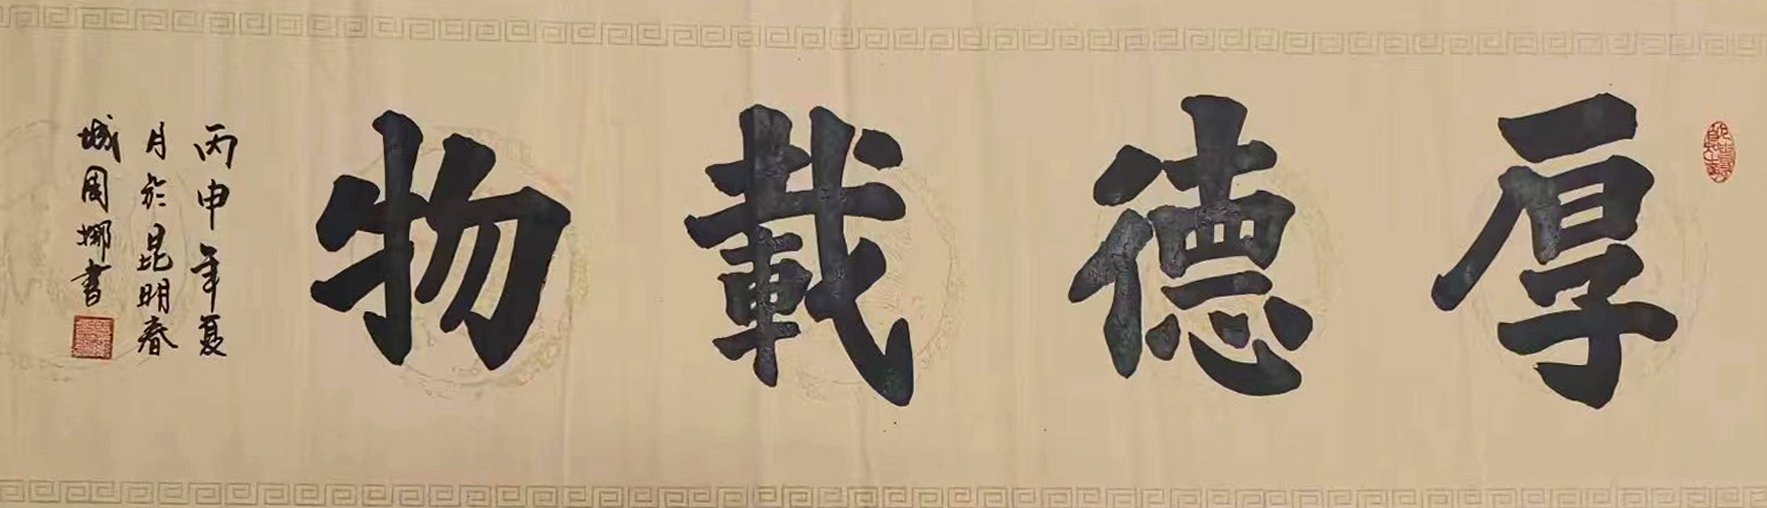 厚德載物
丙申年夏
月於昆明春
城周娜書